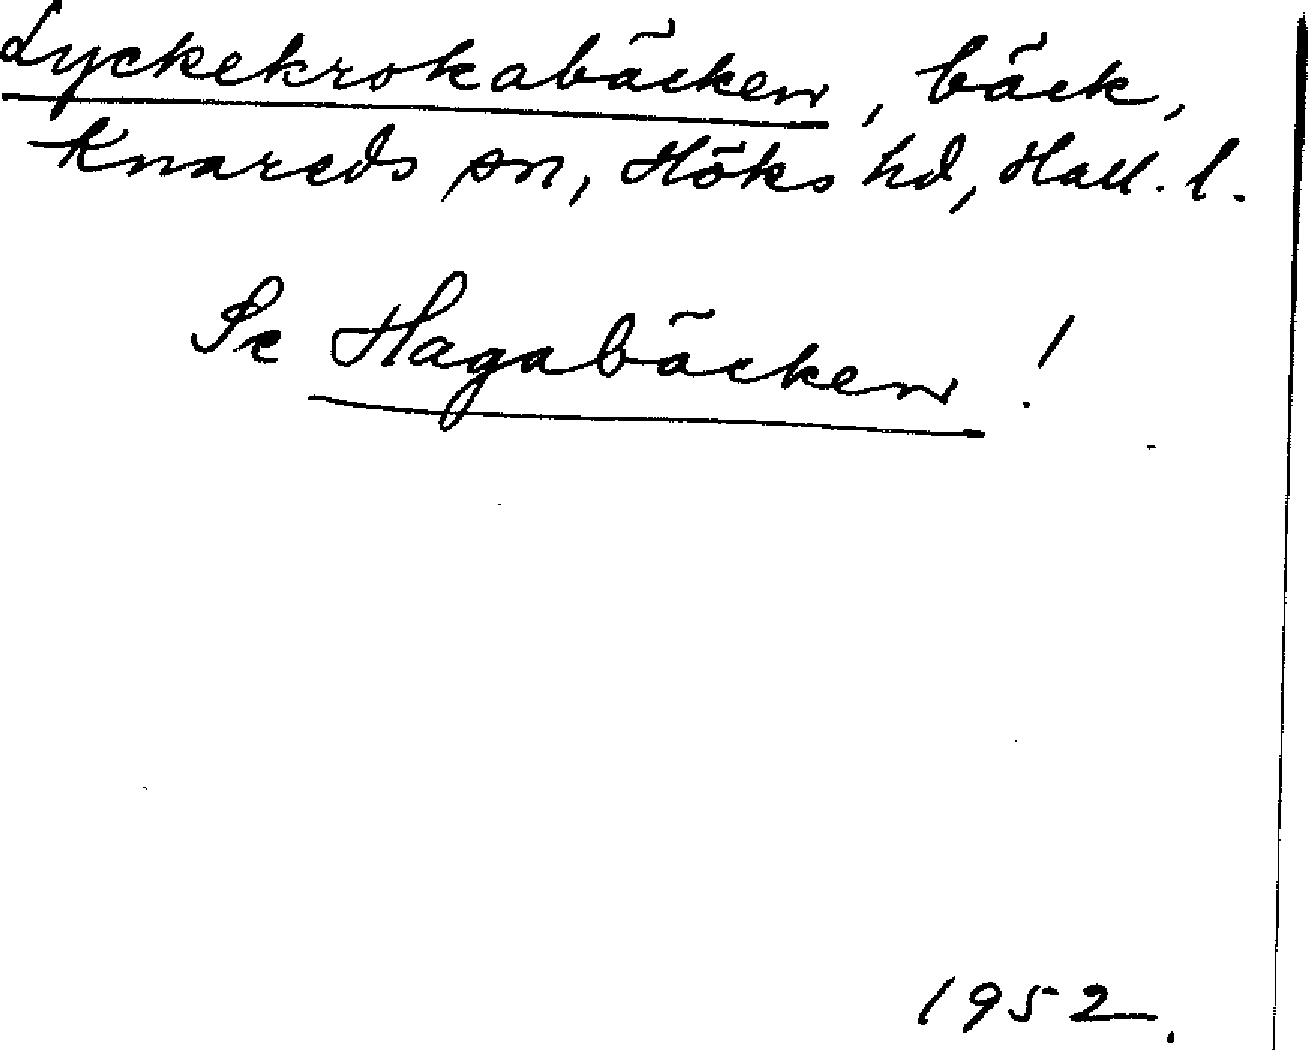 Lyckekrokabäcken, bäck,
Knareds sn, Höks hd, Hall. l.
Se Hagabäcken!
1952.